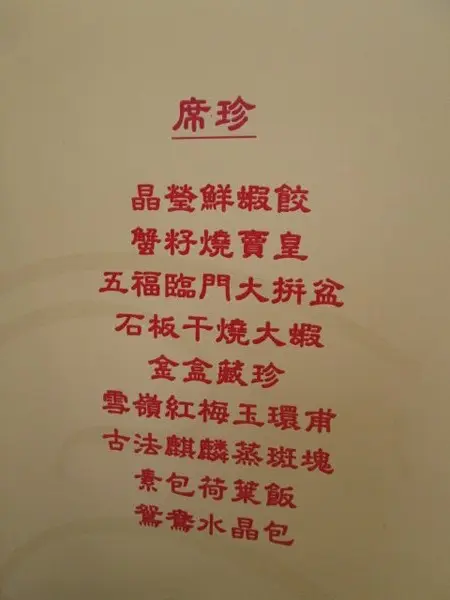 席珍
晶瑩鮮蝦餃
蟹籽燒賣皇
五福臨門大拼盆
石板干燒大蝦
金盒藏珍
雪嶺紅梅玉環甫
古法麒麟蒸斑塊
素包荷葉飯
鴛鴦水晶包